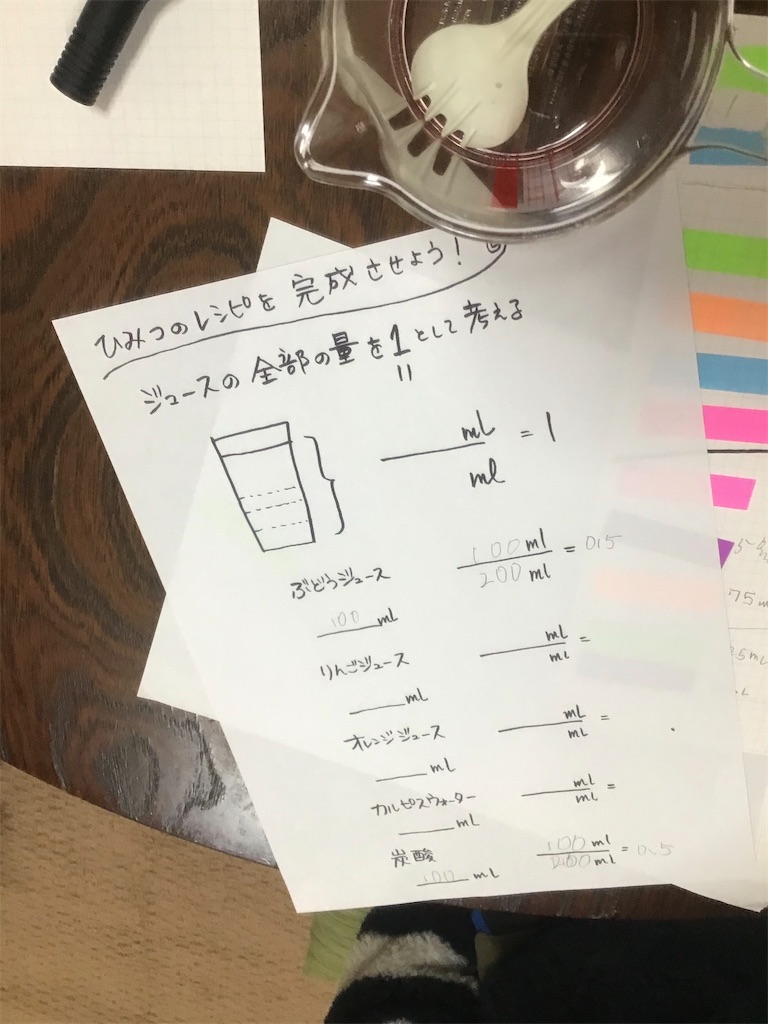 ひみつのレシピを完成させよう!
ジュースの全部の量を1として考える
ml
ml = 1
ぶどうジュース
100 ml
100 ml
200 ml = 0.5
りんごジュース
ml
ml
ml =
オレンジジュース
ml
ml
ml =
カルピスウォーター
ml
ml
ml =
炭酸
100 ml
100 ml
200 ml = 0.5
75 m